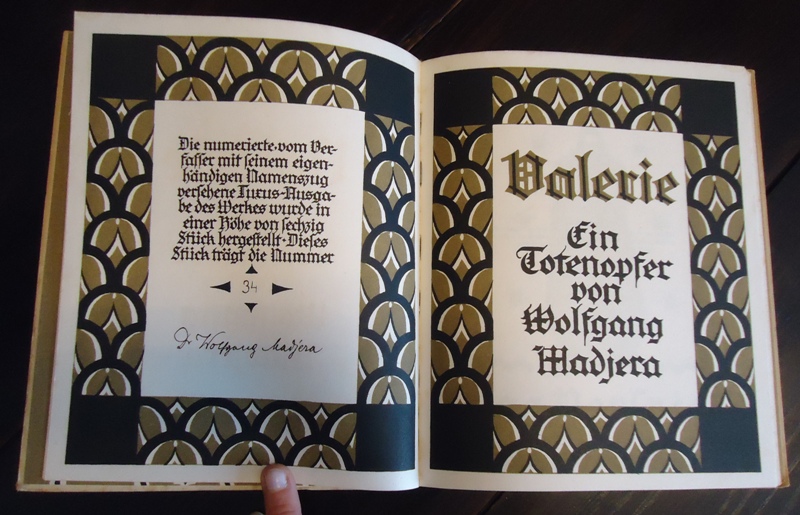 Die numerierte·vom Ver-
fasser mit seinem eigen-
händigen Namenszug
versehene Luxus-Ausga-
be des Werkes wurde in
einer Höhe von sechzig
Stück hergestellt·Dieses
Stück trägt die Nummer
34
Dr Wolfgang Madjera
Valerie
Ein
Totenopfer
von
Wolfgang
Madjera